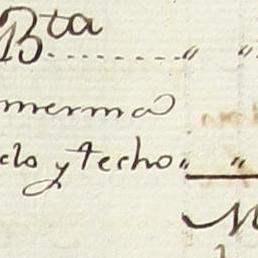 Bta........ " "
merma
do y techo " "
M